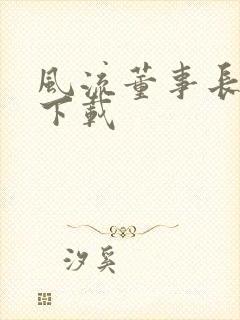 風流董事長
下載
汐奚